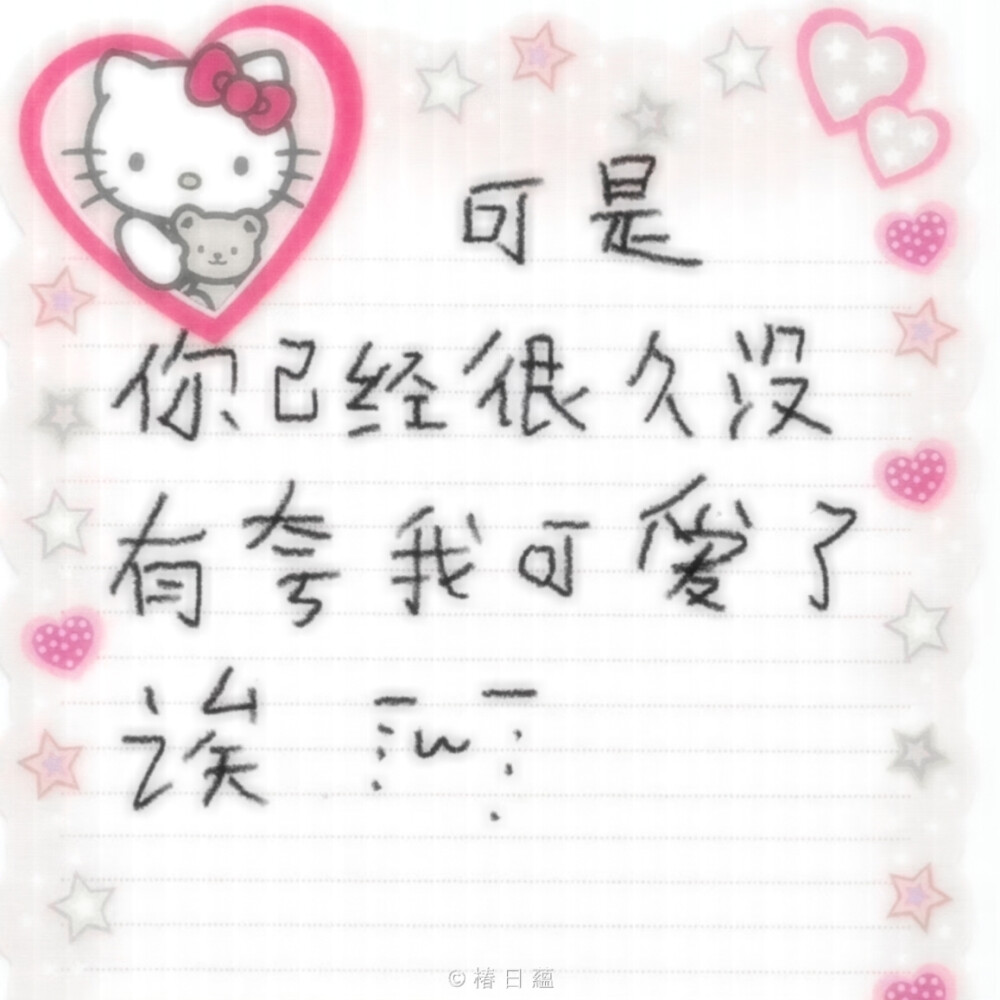 可是
你已经很久没
有夸我可爱了
诶
© 椿日蘊